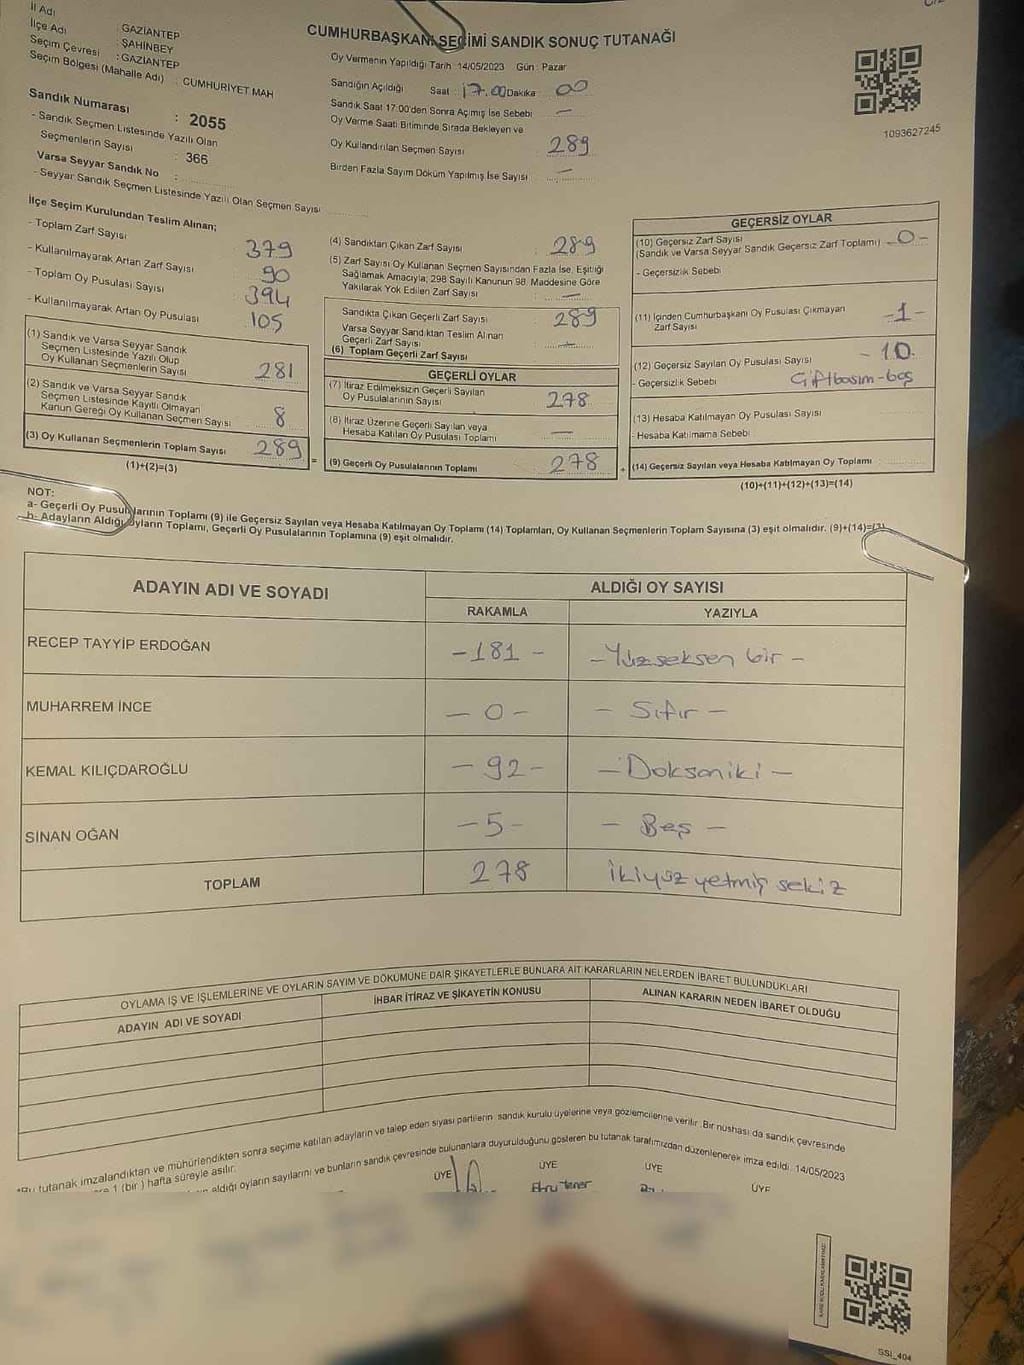 İl Adı
İlçe Adı : GAZİANTEP
Seçim Çevresi : ŞAHİNBEY
Seçim Bölgesi (Mahalle Adı) : GAZİANTEP
: CUMHURİYET MAH
Sandık Numarası : 2055
- Sandık Seçmen Listesinde Yazılı Olan
Seçmenlerin Sayısı : 366
Varsa Seyyar Sandık No :
- Seyyar Sandık Seçmen Listesinde Yazılı Olan Seçmen Sayısı
CUMHURBAŞKANI SEÇİMİ SANDIK SONUÇ TUTANAĞI
Oy Vermenin Yapıldığı Tarih :14/05/2023 Gün : Pazar
Sandığın Açıldığı Saat : 17.00 Dakika 00
Sandık Saat 17:00'den Sonra Açılmış İse Sebebi : —
Oy Verme Saati Bitiminde Sırada Bekleyen ve
Oy Kullandırılan Seçmen Sayısı 289
Birden Fazla Sayım Döküm Yapılmış İse Sayısı —
1093627245
İlçe Seçim Kurulundan Teslim Alınan;
- Toplam Zarf Sayısı : 379
- Kullanılmayarak Artan Zarf Sayısı : 90
- Toplam Oy Pusulası Sayısı : 394
- Kullanılmayarak Artan Oy Pusulası : 105
(1) Sandık ve Varsa Seyyar Sandık
Seçmen Listesinde Yazılı Olup
Oy Kullanan Seçmenlerin Sayısı 281
(2) Sandık ve Varsa Seyyar Sandık
Seçmen Listesinde Kayıtlı Olmayan
Kanun Gereği Oy Kullanan Seçmen Sayısı 8
(3) Oy Kullanan Seçmenlerin Toplam Sayısı 289
(1)+(2)=(3)
(4) Sandıktan Çıkan Zarf Sayısı : 289
(5) Zarf Sayısı Oy Kullanan Seçmen Sayısından Fazla İse, Eşitliği
Sağlamak Amacıyla; 298 Sayılı Kanunun 98. Maddesine Göre
Yakılarak Yok Edilen Zarf Sayısı : —
Sandıkta Çıkan Geçerli Zarf Sayısı : 289
Varsa Seyyar Sandıktan Teslim Alınan
Geçerli Zarf Sayısı : —
(6) Toplam Geçerli Zarf Sayısı
GEÇERLİ OYLAR
(7) İtiraz Edilmeksizin Geçerli Sayılan
Oy Pusulalarının Sayısı : 278
(8) İtiraz Üzerine Geçerli Sayılan veya
Hesaba Katılan Oy Pusulası Toplamı : —
(9) Geçerli Oy Pusulalarının Toplamı 278
GEÇERSİZ OYLAR
(10) Geçersiz Zarf Sayısı
(Sandık ve Varsa Seyyar Sandık Geçersiz Zarf Toplamı) - 0 -
- Geçersizlik Sebebi
(11) İçinden Cumhurbaşkanı Oy Pusulası Çıkmayan
Zarf Sayısı -1-
(12) Geçersiz Sayılan Oy Pusulası Sayısı - 10.
- Geçersizlik Sebebi Çiftbasım-boş
(13) Hesaba Katılmayan Oy Pusulası Sayısı
- Hesaba Katılmama Sebebi
(14) Geçersiz Sayılan veya Hesaba Katılmayan Oy Toplamı
(10)+(11)+(12)+(13)=(14)
NOT:
a- Geçerli Oy Pusulalarının Toplamı (9) ile Geçersiz Sayılan veya Hesaba Katılmayan Oy Toplamı (14) Toplamları, Oy Kullanan Seçmenlerin Toplam Sayısına (3) eşit olmalıdır. (9)+(14)=(3)
b- Adayların Aldığı Oyların Toplamı, Geçerli Oy Pusulalarının Toplamına (9) eşit olmalıdır.
ADAYIN ADI VE SOYADI ALDIĞI OY SAYISI
RAKAMLA YAZIYLA
RECEP TAYYİP ERDOĞAN -181 - -Yüzseksen bir -
MUHARREM İNCE - 0 - - Sıfır -
KEMAL KILIÇDAROĞLU - 92 - - Doksaniki -
SİNAN OĞAN -5- - Beş -
TOPLAM 278 ikiyüz yetmiş sekiz
OYLAMA İŞ VE İŞLEMLERİNE VE OYLARIN SAYIM VE DÖKÜMÜNE DAİR ŞİKAYETLERLE BUNLARA AİT KARARLARIN NELERDEN İBARET BULUNDUKLARI
ADAYIN ADI VE SOYADI İHBAR İTİRAZ VE ŞİKAYETİN KONUSU ALINAN KARARIN NEDEN İBARET OLDUĞU
*Bu tutanak imzalandıktan ve mühürlendikten sonra seçime katılan adayların ve talep eden siyasi partilerin sandık kurulu üyelerine veya gözlemcilerine verilir. Bir nüshası da sandık çevresinde
1 (bir) hafta süreyle asılır.
aldığı oyların sayılarını ve bunların sandık çevresinde bulunanlara duyurulduğunu gösteren bu tutanak tarafımızdan düzenlenerek imza edildi. 14/05/2023
ÜYE ÜYE ÜYE ÜYE
SSI_404